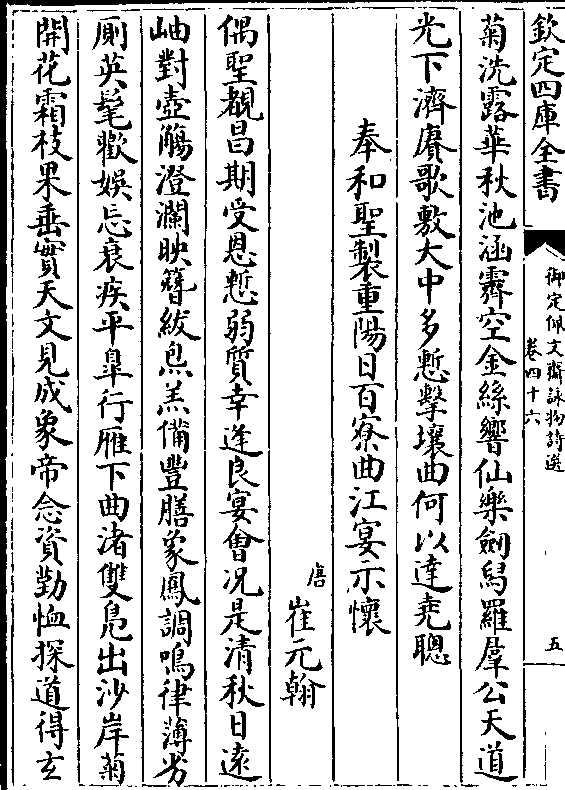 欽定四庫全書
御定佩文齋詠物詩選
卷四十六
五
菊洗露華秋池涵霽空金絲響仙樂劔舄羅羣公天道
光下濟賡歌敷大中多慙擊壤曲何以達堯聰
奉和聖製重陽日百寮曲江宴示懷
唐
崔元翰
偶聖覩昌期受恩慙弱質幸逢良宴會况是清秋日遠
岫對壺觴澄瀾映簪紱炰羔備豐膳象鳳調鳴律薄劣
厠英髦歡娛忘衰疾平臯行雁下曲渚雙鳬出沙岸菊
開花霜枝果垂實天文見成象帝念資勤恤探道得玄